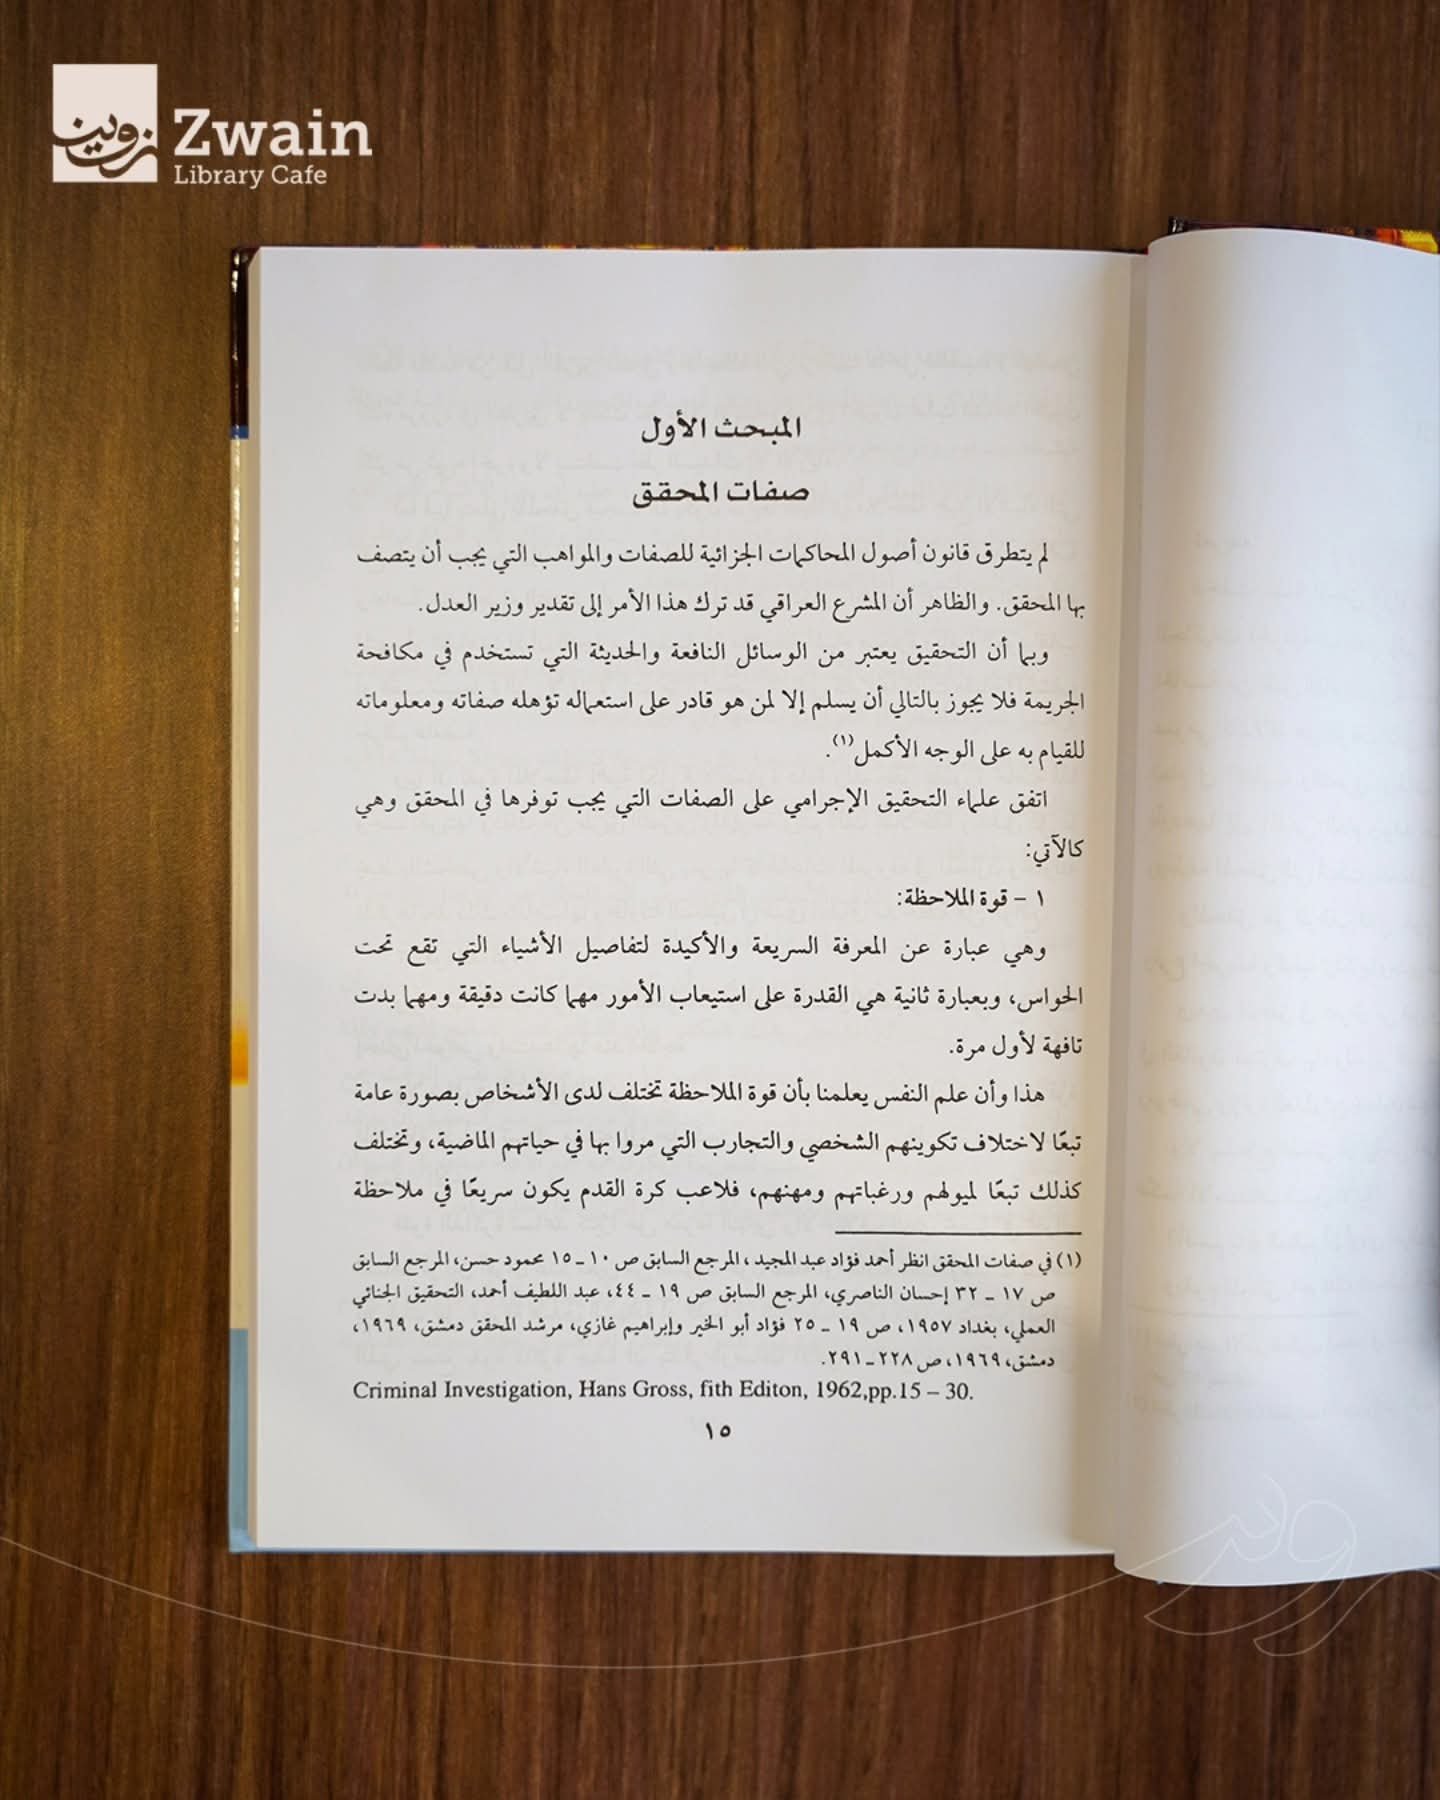 زوين
Zwain
Library Cafe
المبحث الأول
صفات المحقق
لم يتطرق قانون أصول المحاكمات الجزائية للصفات والمواهب التي يجب أن يتصف
بها المحقق. والظاهر أن المشرع العراقي قد ترك هذا الأمر إلى تقدير وزير العدل.
وبما أن التحقيق يعتبر من الوسائل النافعة والحديثة التي تستخدم في مكافحة
الجريمة فلا يجوز بالتالي أن يسلم إلا لمن هو قادر على استعماله تؤهله صفاته ومعلوماته
للقيام به على الوجه الأكمل(١).
اتفق علماء التحقيق الإجرامي على الصفات التي يجب توفرها في المحقق وهي
كالآتي:
١ – قوة الملاحظة:
وهي عبارة عن المعرفة السريعة والأكيدة لتفاصيل الأشياء التي تقع تحت
الحواس، وبعبارة ثانية هي القدرة على استيعاب الأمور مهما كانت دقيقة ومهما بدت
تافهة لأول مرة.
هذا وأن علم النفس يعلمنا بأن قوة الملاحظة تختلف لدى الأشخاص بصورة عامة
تبعًا لاختلاف تكوينهم الشخصي والتجارب التي مروا بها في حياتهم الماضية، وتختلف
كذلك تبعًا لميولهم ورغباتهم ومهنهم، فلاعب كرة القدم يكون سريعًا في ملاحظة
(١) في صفات المحقق انظر أحمد فؤاد عبد المجيد ، المرجع السابق ص ١٠ ـ ١٥ محمود حسن، المرجع السابق
ص ١٧ ـ ٣٢ إحسان الناصري، المرجع السابق ص ١٩ ـ ٤٤، عبد اللطيف أحمد، التحقيق الجنائي
العملي، بغداد ١٩٥٧، ص ١٩ ـ ٢٥ فؤاد أبو الخير وإبراهيم غازي، مرشد المحقق دمشق، ١٩٦٩،
دمشق، ١٩٦٩، ص ٢٢٨ ـ ٢٩١.
Criminal Investigation, Hans Gross, fith Editon, 1962,pp.15 – 30.
١٥